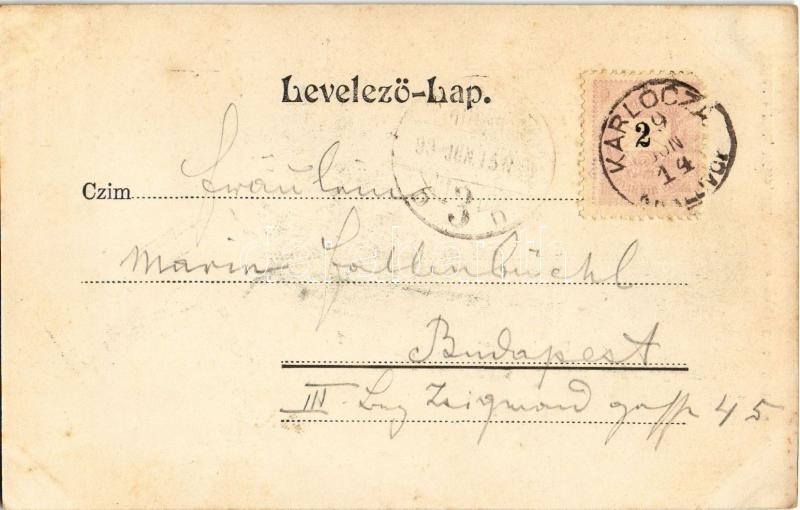 Levelező-Lap.
KARLOCZA
KARLOVCI
9
JUN
14
2
99 JUN 15
3
D
Czim Fräulein
Marin Fallenbüchl
Budapest
III. Zsigmond gasse 45.